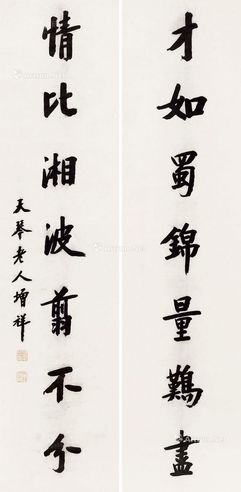 才如蜀錦量鷄盡
情比湘波翦不分
天琴老人增祥